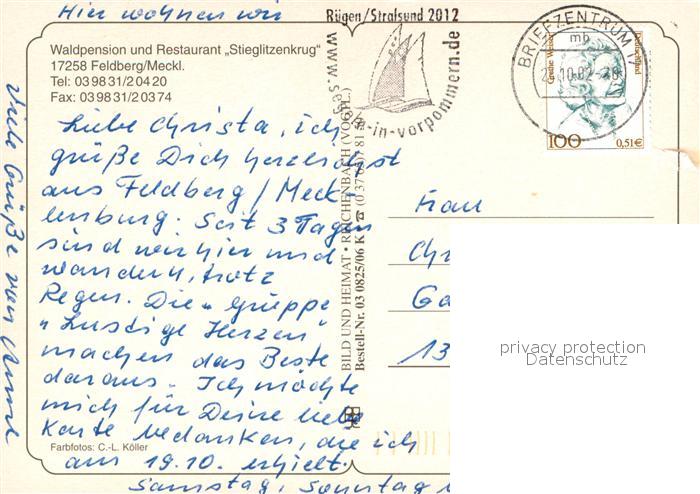 Hier wohnen wir
Rügen/Stralsund 2012
www.see
m-in-vorpommern.de
BRIEFZENTRUM 17
mb
10.02
Grethe Weiser
Deutschland
100
0,51€
Waldpension und Restaurant „Stieglitzenkrug"
17258 Feldberg/Meckl.
Tel: 03 98 31/2 04 20
Fax: 03 98 31/2 03 74
Liebe Christa, ich
grüße Dich herzlichst
aus Feldberg / Meck-
lenburg. Seit 3 Tagen
sind wir hier und
wandern, trotz
Regen. Die „Gruppe
„Lustige Herzen"
machen das Beste
daraus. Ich möchte
mich für Deine liebe
Karte bedanken, die ich
am 19.10. erhielt.
Samstag, Sonntag
Viele Grüße von
BILD UND HEIMAT · REICHENBACH (VOGTL.)
Bestell-Nr. 03 0825/06 K
Frau
Ch
Ga
13
Farbfotos: C.-L. Köller
privacy protection
Datenschutz